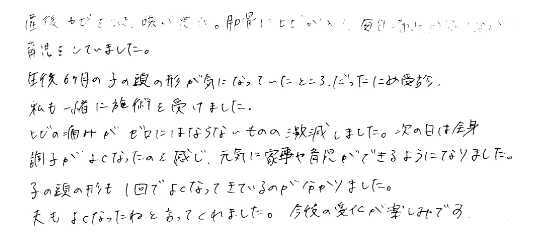 産後 カゼをひき、咳い
育児をしていました。
生後6ヶ月の子の頭の形が気になっていたところ、だったため受診、
私も一緒に施術を受けました。
ヒビの痛みがゼロにはならないものの激減しました。次の日は全身
調子がよくなったのを感じ、元気に家事や育児ができるようになりました。
子の頭の形も1回でよくなってきているのが分かりました。
夫もよくなったねと言ってくれました。今後の変化が楽しみです